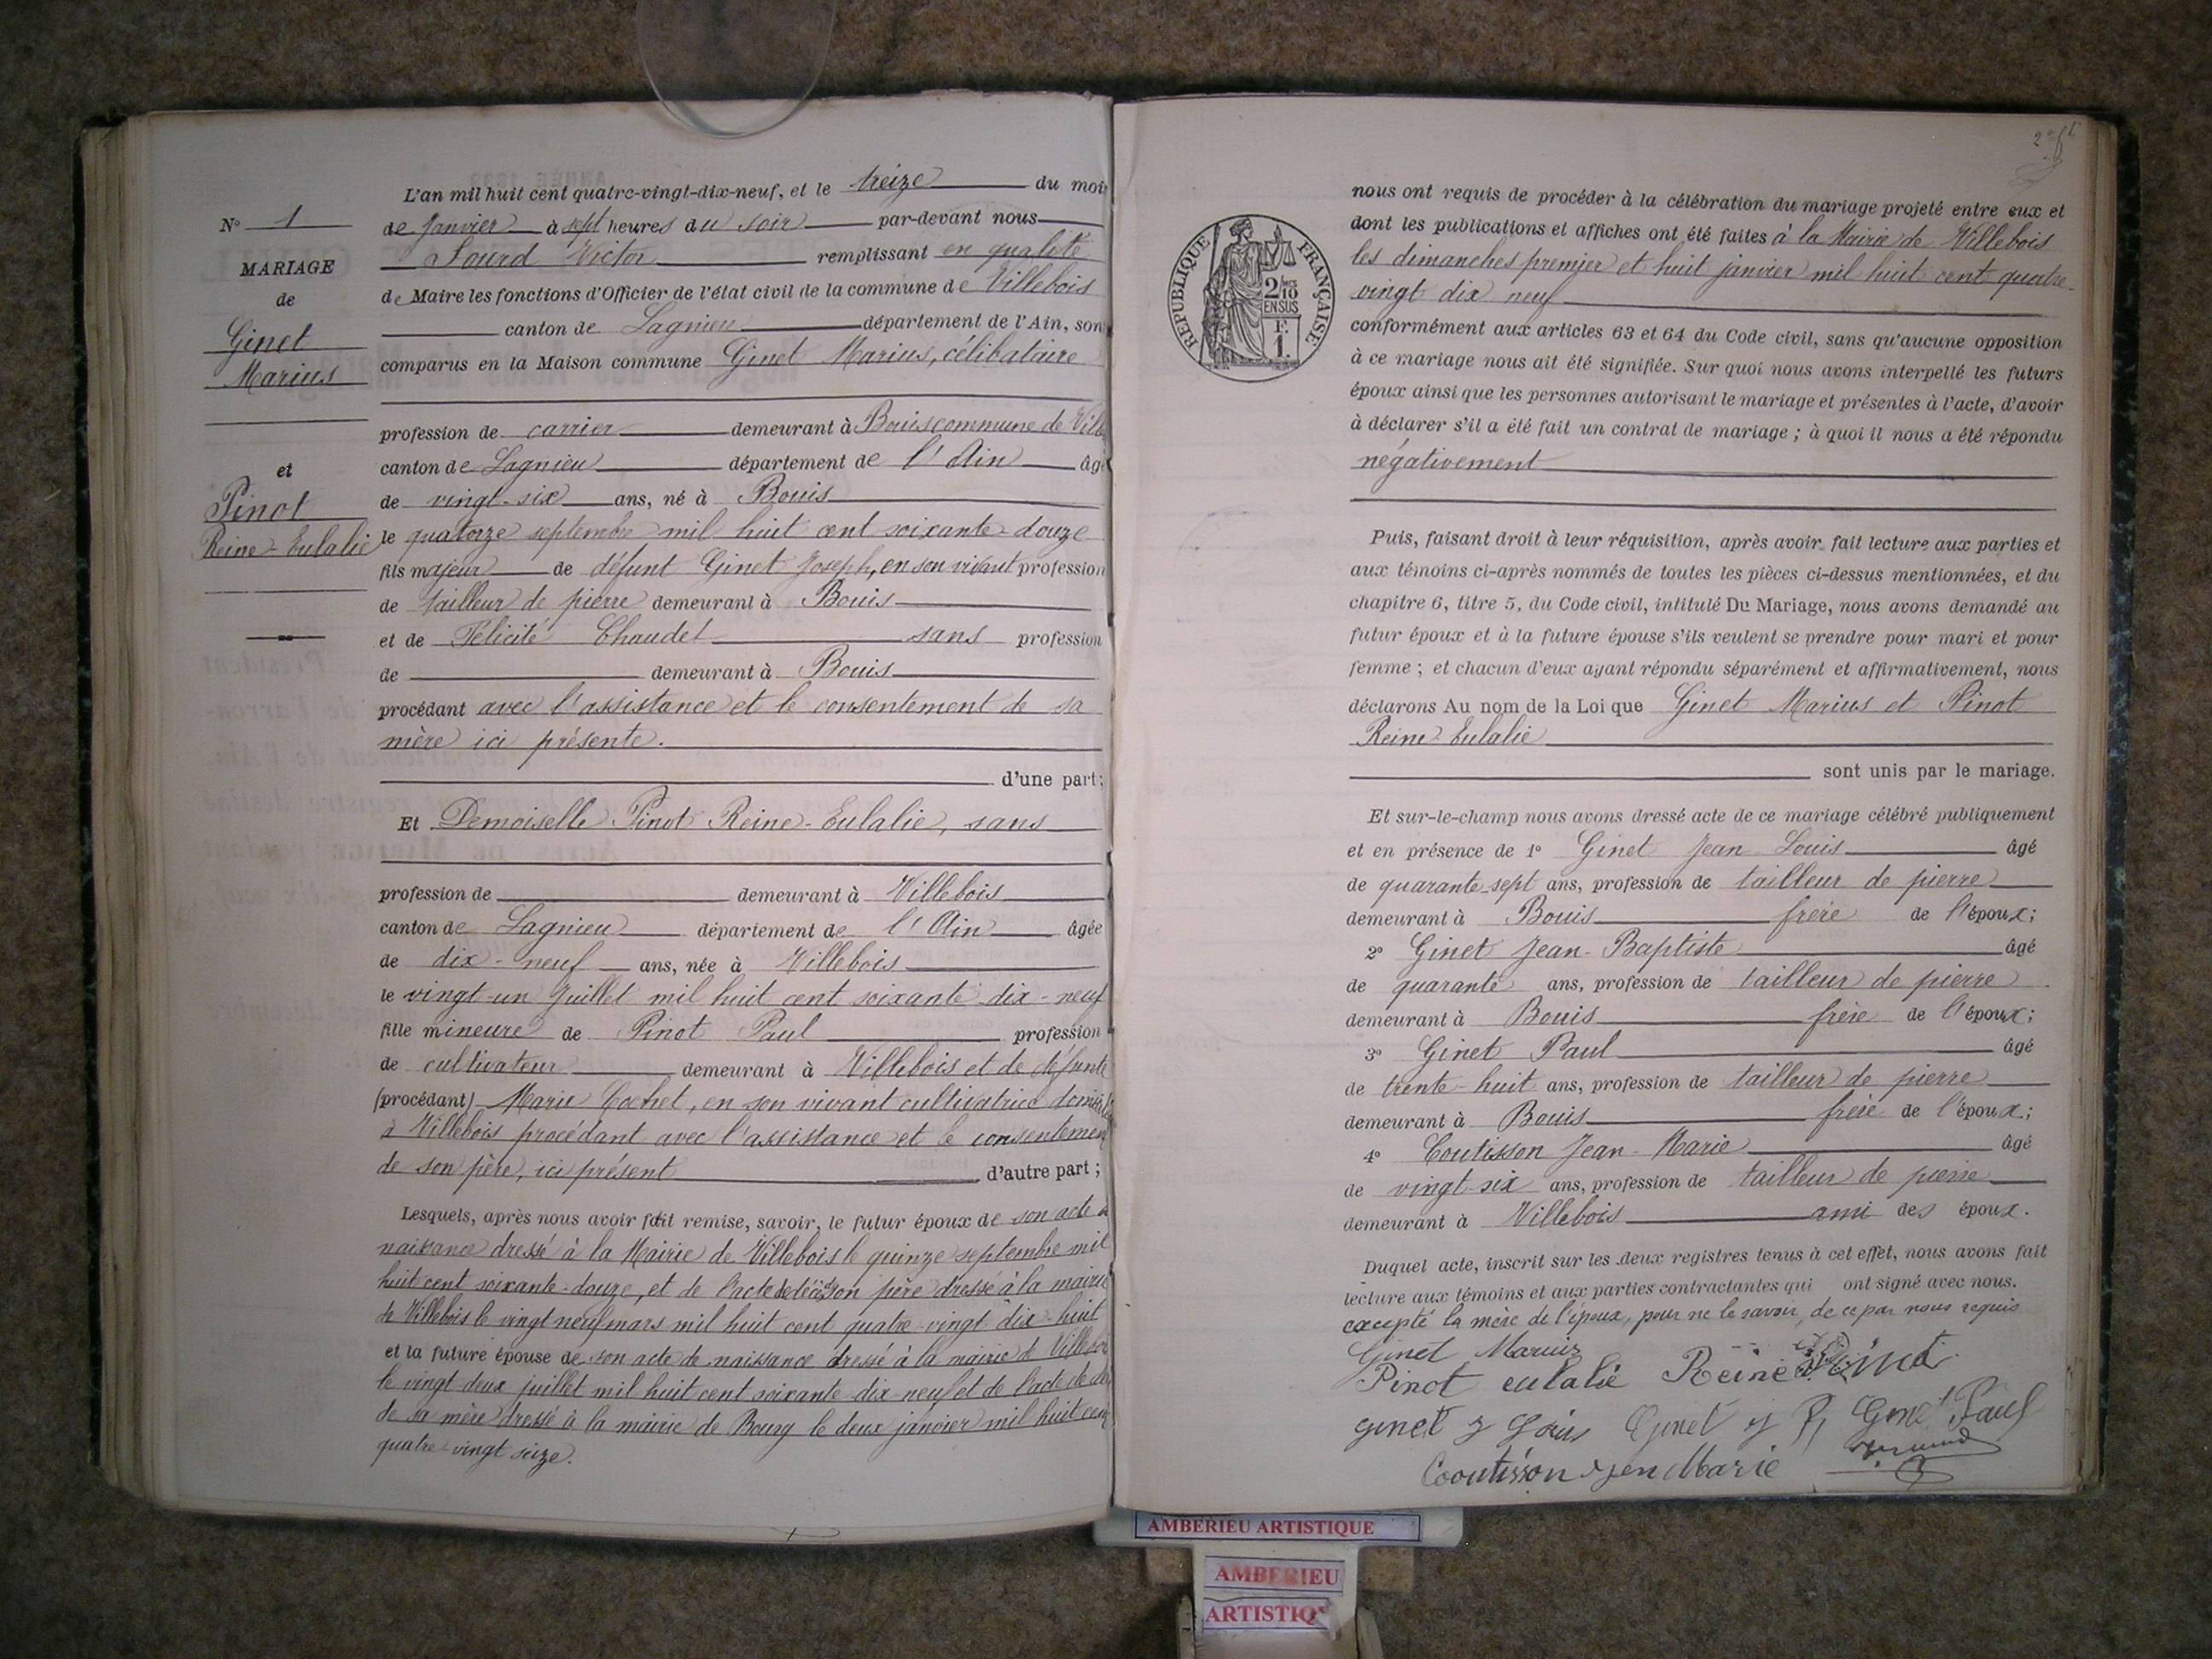 N° 1
MARIAGE
de
Ginet
Marius
et
Pinot
Reine-Eulalie
L'an mil huit cent quatre-vingt-dix-neuf, et le treize du mois
de Janvier à sept heures du soir par-devant nous
Sourd Victor remplissant en qualité
de Maire les fonctions d'Officier de l'état civil de la commune de Villebois
canton de Lagnieu département de l'Ain, son
comparus en la Maison commune Ginet Marius, célibataire
profession de carrier demeurant à Bouis commune de Ville
canton de Lagnieu département de l'Ain âgé
de vingt-six ans, né à Bouis
le quatorze septembre mil huit cent soixante-douze
fils majeur de défunt Ginet Joseph, en son vivant profession
de tailleur de pierre demeurant à Bouis
et de Félicité Chaudet sans profession
de demeurant à Bouis
procédant avec l'assistance et le consentement de sa
mère ici présente.
d'une part;
Et Demoiselle Pinot Reine-Eulalie, sans
profession de demeurant à Villebois
canton de Lagnieu département de l'Ain âgée
de dix-neuf ans, née à Villebois
le vingt-un Juillet mil huit cent soixante-dix-neuf
fille mineure de Pinot Paul profession
de cultivateur demeurant à Villebois et de défunte
(procédant) Marie Cochet, en son vivant cultivatrice
à Villebois procédant avec l'assistance et le consentemen
de son père, ici présent d'autre part;
Lesquels, après nous avoir fait remise, savoir, le futur époux de son acte d
naissance dressé à la Mairie de Villebois le quinze septembre mil
huit cent soixante-douze, et de l'acte de décès de son père dressé à la mairie
de Villebois le vingt neuf mars mil huit cent quatre-vingt dix-huit
et la future épouse de son acte de naissance dressé à la mairie de Villebois
le vingt-deux juillet mil huit cent soixante-dix-neuf et de l'acte de
de sa mère dressé à la mairie de Bourg le deux janvier mil huit cent
quatre-vingt seize.
RÉPUBLIQUE FRANÇAISE
2 10
EN SUS
F.
1.
nous ont requis de procéder à la célébration du mariage projeté entre eux et
dont les publications et affiches ont été faites à la Mairie de Villebois
les dimanches premier et huit janvier mil huit cent quatre-
vingt dix neuf
conformément aux articles 63 et 64 du Code civil, sans qu'aucune opposition
à ce mariage nous ait été signifiée. Sur quoi nous avons interpellé les futurs
époux ainsi que les personnes autorisant le mariage et présentes à l'acte, d'avoir
à déclarer s'il a été fait un contrat de mariage; à quoi il nous a été répondu
négativement
Puis, faisant droit à leur réquisition, après avoir fait lecture aux parties et
aux témoins ci-après nommés de toutes les pièces ci-dessus mentionnées, et du
chapitre 6, titre 5, du Code civil, intitulé Du Mariage, nous avons demandé au
futur époux et à la future épouse s'ils veulent se prendre pour mari et pour
femme; et chacun d'eux ayant répondu séparément et affirmativement, nous
déclarons Au nom de la Loi que Ginet Marius et Pinot
Reine-Eulalie
sont unis par le mariage.
Et sur-le-champ nous avons dressé acte de ce mariage célébré publiquement
et en présence de 1° Ginet Jean Louis âgé
de quarante-sept ans, profession de tailleur de pierre
demeurant à Bouis frère de l'époux;
2° Ginet Jean-Baptiste âgé
de quarante ans, profession de tailleur de pierre
demeurant à Bouis frère de l'époux;
3° Ginet Paul âgé
de trente-huit ans, profession de tailleur de pierre
demeurant à Bouis frère de l'époux;
4° Coutisson Jean-Marie âgé
de vingt-six ans, profession de tailleur de pierre
demeurant à Villebois ami des époux.
Duquel acte, inscrit sur les deux registres tenus à cet effet, nous avons fait
lecture aux témoins et aux parties contractantes qui ont signé avec nous.
excepté la mère de l'époux, pour ne le savoir, de ce par nous requis
Ginet Marius
Pinot eulalie Reine Pinot
ginet j Louis Ginet j B Ginet Paul
Cooutisson jen Marie
AMBERIEU ARTISTIQUE
AMBERIEU
ARTISTIQ